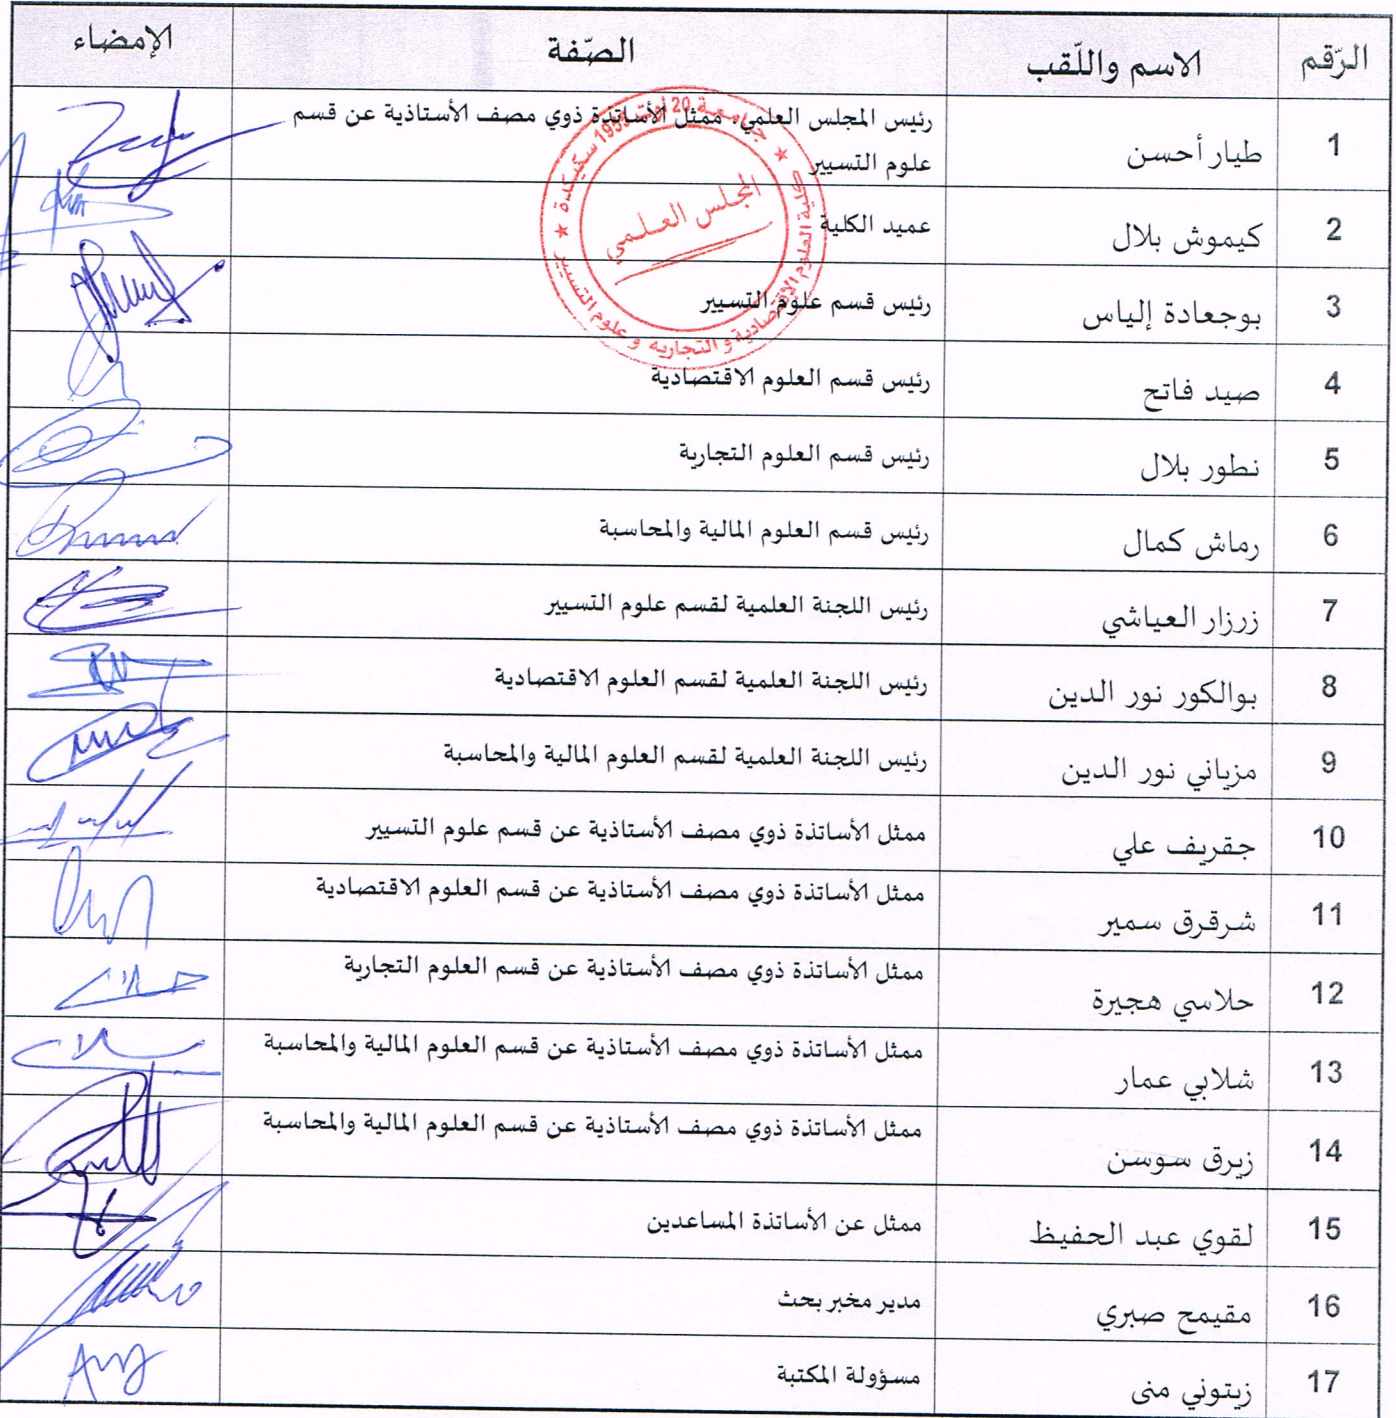 الرّقم الاسم واللّقب الصّفة الإمضاء
1 طيار أحسن رئيس المجلس العلمي، ممثل الأساتذة ذوي مصف الأستاذية عن قسم
علوم التسيير
2 كيموش بلال عميد الكلية
3 بوجعادة إلياس رئيس قسم علوم التسيير
4 صيد فاتح رئيس قسم العلوم الاقتصادية
5 نطور بلال رئيس قسم العلوم التجارية
6 رماش كمال رئيس قسم العلوم المالية والمحاسبة
7 زرزار العياشي رئيس اللجنة العلمية لقسم علوم التسيير
8 بوالكور نور الدين رئيس اللجنة العلمية لقسم العلوم الاقتصادية
9 مزياني نور الدين رئيس اللجنة العلمية لقسم العلوم المالية والمحاسبة
10 جقريف علي ممثل الأساتذة ذوي مصف الأستاذية عن قسم علوم التسيير
11 شرقرق سمير ممثل الأساتذة ذوي مصف الأستاذية عن قسم العلوم الاقتصادية
12 حلاسي هجيرة ممثل الأساتذة ذوي مصف الأستاذية عن قسم العلوم التجارية
13 شلابي عمار ممثل الأساتذة ذوي مصف الأستاذية عن قسم العلوم المالية والمحاسبة
14 زيرق سوسن ممثل الأساتذة ذوي مصف الأستاذية عن قسم العلوم المالية والمحاسبة
15 لقوي عبد الحفيظ ممثل عن الأساتذة المساعدين
16 مقيمح صبري مدير مخبر بحث
17 زيتوني منى مسؤولة المكتبة
جامعة 20 أوت 1955 سكيكدة
كلية العلوم الإقتصادية و التجارية و علوم التسيير
المجلس العلمي